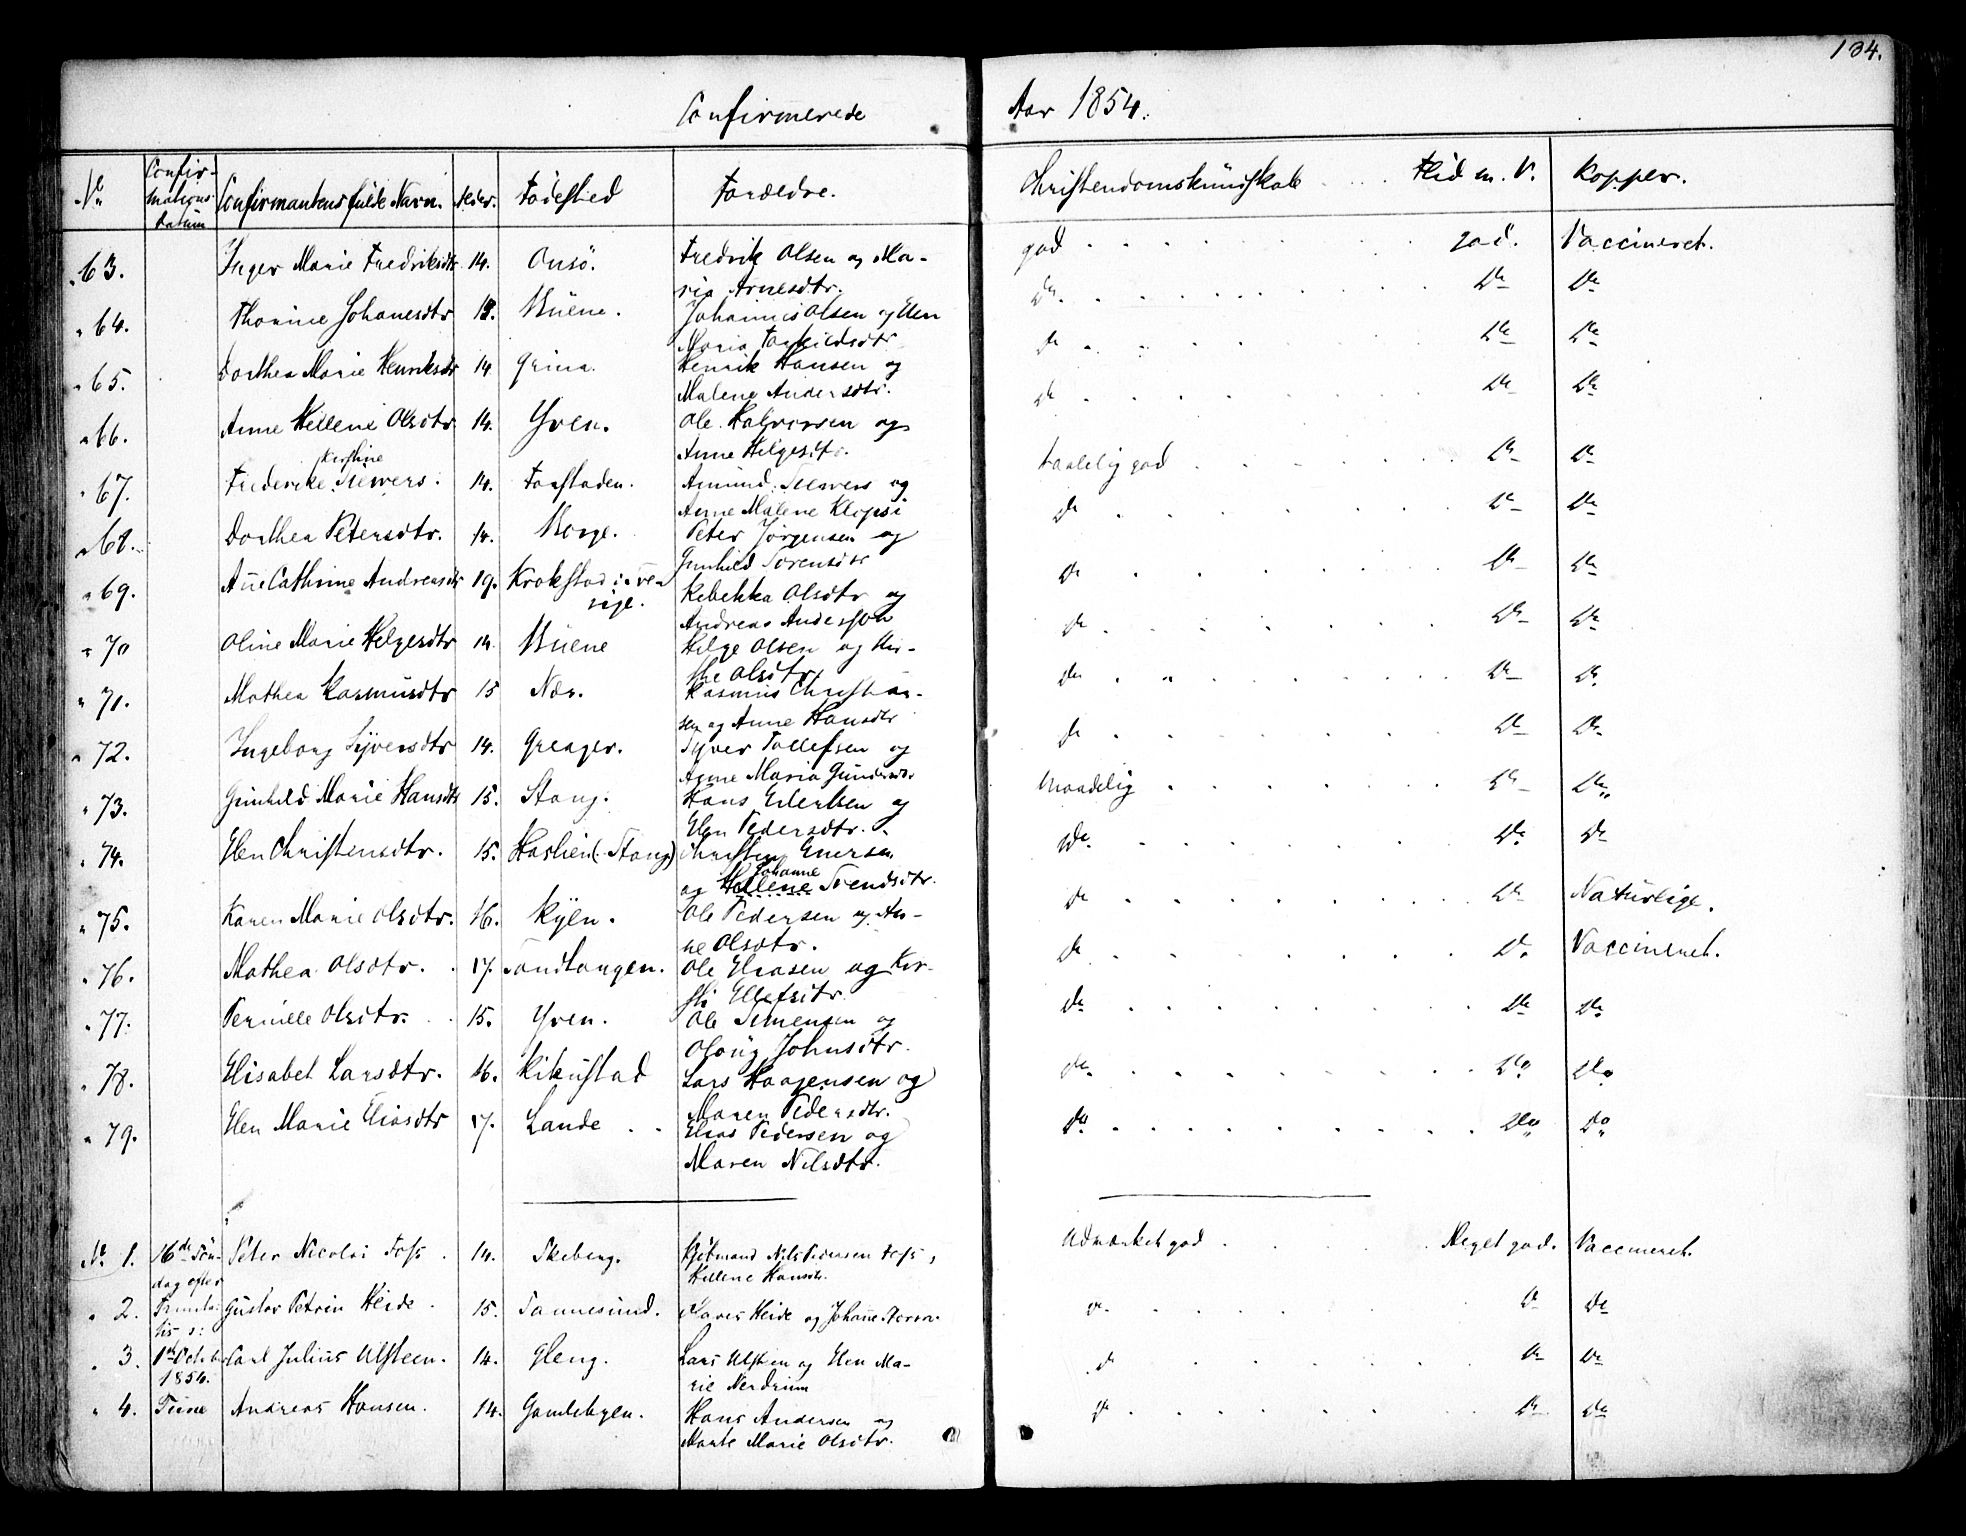 134.
Confirmerede Aar 1854.
No Confirmations Datum Confirmantens fulde Navn. Alder. Fødested Forældre. Christendomskundskab Flid m. V. Kopper.
63. Inger Marie Fredriksdtr 14. Onsö. Fredrik Olsen og Ma- god god. Vaccineret.
ria Arnesdtr.
64. Thorine Johanesdtr Johannis Olsen og Elen Do Do Do
Maria
65. Dorthea Marie Henriksdtr 14 Grina. Henrik Hansen og Do Do Do
Malene Andersdtr.
66. Anne Hellene Olsdtr 14. Yven. Ole Halvorsen og Do Do Do
Anne Helgesdtr.
Kirstine
67. Frederike Siewers. 14. Torstaden. Amund Siewers og taalelig god Do Do
Anne Malene
68. Dorthea Petersdtr. 14. Borge. Peter Jørgensen og Do Do Do
Gunhild Sørensdtr
69. Ane Cathrine Andreasdtr 19. Krokstad i Sve- Rebekka Olsdtr og Do Do Do
rige. Andreas Andersson
70 Oline Marie Helgesdtr 14. Helge Olsen og Kir- Do Do Do
sthe Olsdtr
71. Mathea Rasmusdtr 15 Næs. Rasmus Christian- Do Do Do
sen og Anne Hansdtr
72. Ingeborg Syversdtr 14. Greager. Syver Tollefsen og Do Do Do
Anne Maria Gundersdtr
73. Gunhild Marie Hansdtr 15. Stang. Hans Eilertsen og Maadelig Do Do
Elen Pedersdtr.
74. Elen Christensdtr. 15. Haslien (Stang) Christen Do Do Do
Johanne
og Hellene Svendsdtr.
75. Karen Marie Olsdtr. 16. Kyen. Ole Pedersen og An- Do Do Naturlige.
ne Olsdtr.
76. Mathea Olsdtr. 17. Sandtangen. Ole Eliasen og Kir- Do Do Vaccineret.
sti Ellefsdtr.
77. Pernille Olsdtr. 15. Yven. Ole Simensen og Do Do Do
Olaug Johnsdtr.
78. Elisabet Larsdtr. 16. Kikustad Lars Haagensen og Do Do Do
Maren Pedersdtr.
79. Elen Marie Eliasdtr 17. Lande Elias Pedersen og Do Do Do
Maren Nilsdtr.
No 1. 16de Søn- Peter Nicolai Foss 14. Skeberg. Kjøbmand Nils Pedersen Foss, Udmærket god Meget god. Vaccineret.
dag efter Hellene Hansdtr.
2. Trinita- Gustav Petrin Heide 15. Sannesund. Heide og Johane Do Do Do
tis :
3. 1ste October Carl Julius Ulsteen. 14. Gleng. Lars Ulsteen og Elen Ma- Do Do Do
1854. rie Nerdrum
4. Tune Andreas Hansen. 14. Gamlebyen. Hans Andersen og Do Do Do
Marte Marie Olsdtr.